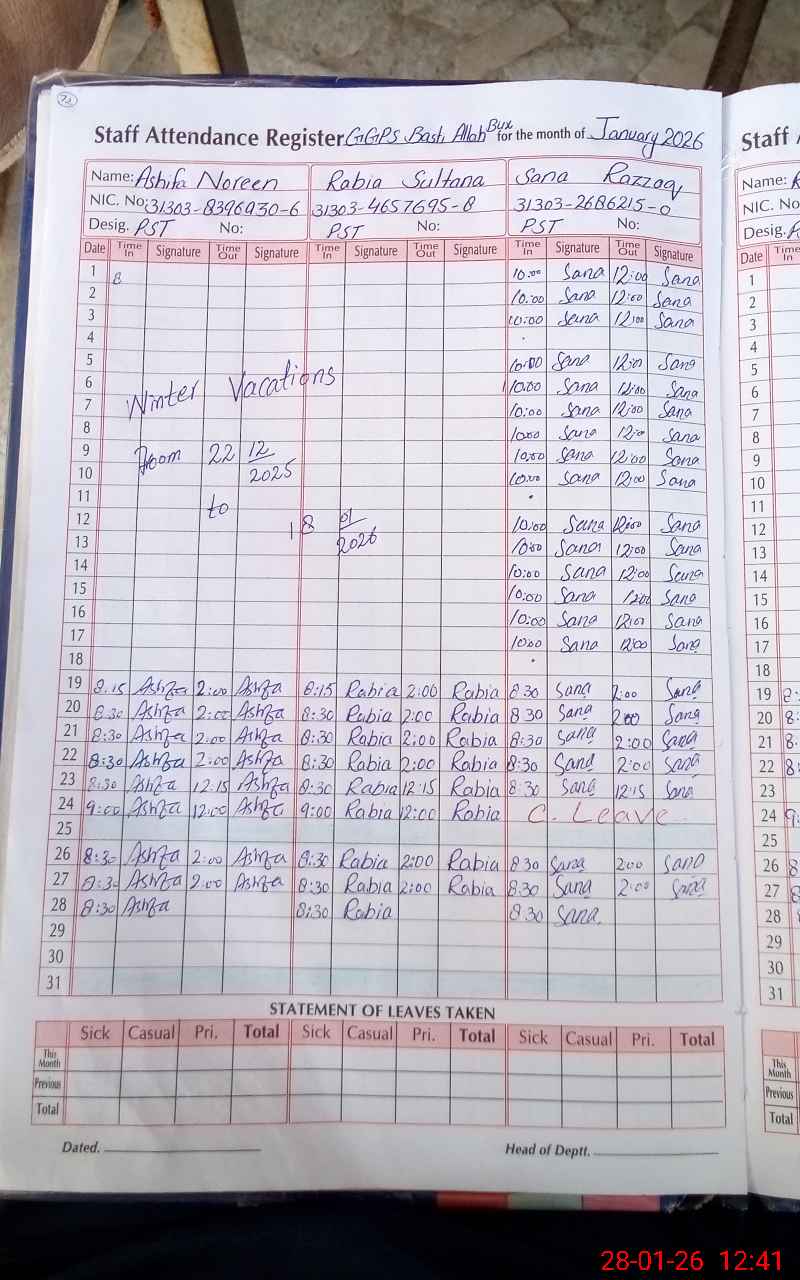 73
Staff Attendance Register GGPS Basti Allah Bux for the month of January 2026
Name: Ashifa Noreen Rabia Sultana Sana Razzaq
NIC. No: 31303-8396930-6 31303-4657695-8 31303-2686215-0
Desig. PST No: PST No: PST No:
Date Time In Signature Time Out Signature Time In Signature Time Out Signature Time In Signature Time Out Signature
1 8 10:00 Sana 12:00 Sana
2 10:00 Sana 12:00 Sana
3 10:00 Sana 12:00 Sana
4
5 10:00 Sana 12:00 Sana
6 10:00 Sana 12:00 Sana
7 10:00 Sana 12:00 Sana
Winter Vacations
8 10:00 Sana 12:0 Sana
9 10:00 Sana 12:00 Sana
10 10:00 Sana 12:00 Sana
From 22 12/2025
11
to
12 10:00 Sana 12:00 Sana
18 01/2026
13 10:00 Sana 12:00 Sana
14 10:00 Sana 12:00 Sana
15 10:00 Sana 1200 Sana
16 10:00 Sana 12:00 Sana
17 10:00 Sana 12:00 Sana
18
19 8.15 Ashfa 2:00 Ashfa 8:15 Rabia 2:00 Rabia 8 30 Sana 2:00 Sana
20 8:30 Ashfa 2:00 Ashfa 8:30 Rabia 2:00 Rabia 8 30 Sana 2:00 Sana
21 8:30 Ashfa 2:00 Ashfa 8:30 Rabia 2:00 Rabia 8:30 Sana 2:00 Sana
22 8:30 Ashfa 2:00 Ashfa 8:30 Rabia 2:00 Rabia 8:30 Sana 2:00 Sana
23 8:30 Ashfa 12:15 Ashfa 8:30 Rabia 12:15 Rabia 8:30 Sana 12:15 Sana
24 9:00 Ashfa 12:00 Ashfa 9:00 Rabia 12:00 Rabia C. Leave
25
26 8:30 Ashfa 2:00 Ashfa 8:30 Rabia 2:00 Rabia 8 30 Sana 2:00 Sana
27 8:30 Ashfa 2:00 Ashfa 8:30 Rabia 2:00 Rabia 8:30 Sana 2:00 Sana
28 8:30 Ashfa 8:30 Rabia 8 30 Sana
29
30
31
STATEMENT OF LEAVES TAKEN
Sick Casual Pri. Total Sick Casual Pri. Total Sick Casual Pri. Total
This Month
Previous
Total
Dated. Head of Deptt.
Staff
Name:
NIC. No:
Desig.
Date Time In
1
2
3
4
5
6
7
8
9
10
11
12
13
14
15
16
17
18
19 8:
20 8:
21 8.
22 8
23
24 9
25
26 8
27 8
28
29
30
31
This Month
Previous
Total
28-01-26 12:41